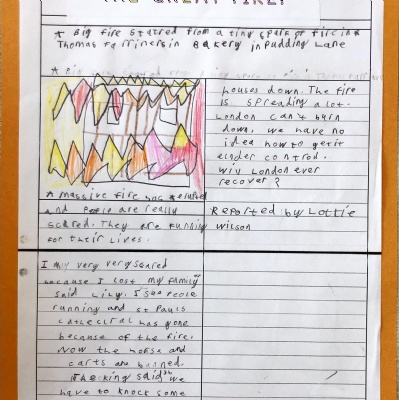 THE GREAT FIRE!
* Big fire statred from a tiny spark of fire in
Thomas farriners in Bakery in Pudding Lane
houses down. The fire
is spreading a lot.
London can't burn
down, we have no
idea how to get it
under control.
will London ever
recover?
* massive fire has
and People are really
scared. They are running
for their lives.
Reported by Lottie
wilson
I am very very scared
because I lost my family"
said Lily. I see Peole
running and st Pauls
cathedral has gone
because of the fire.
Now the horse and
carts are banned.
The king said "we
have to knock some